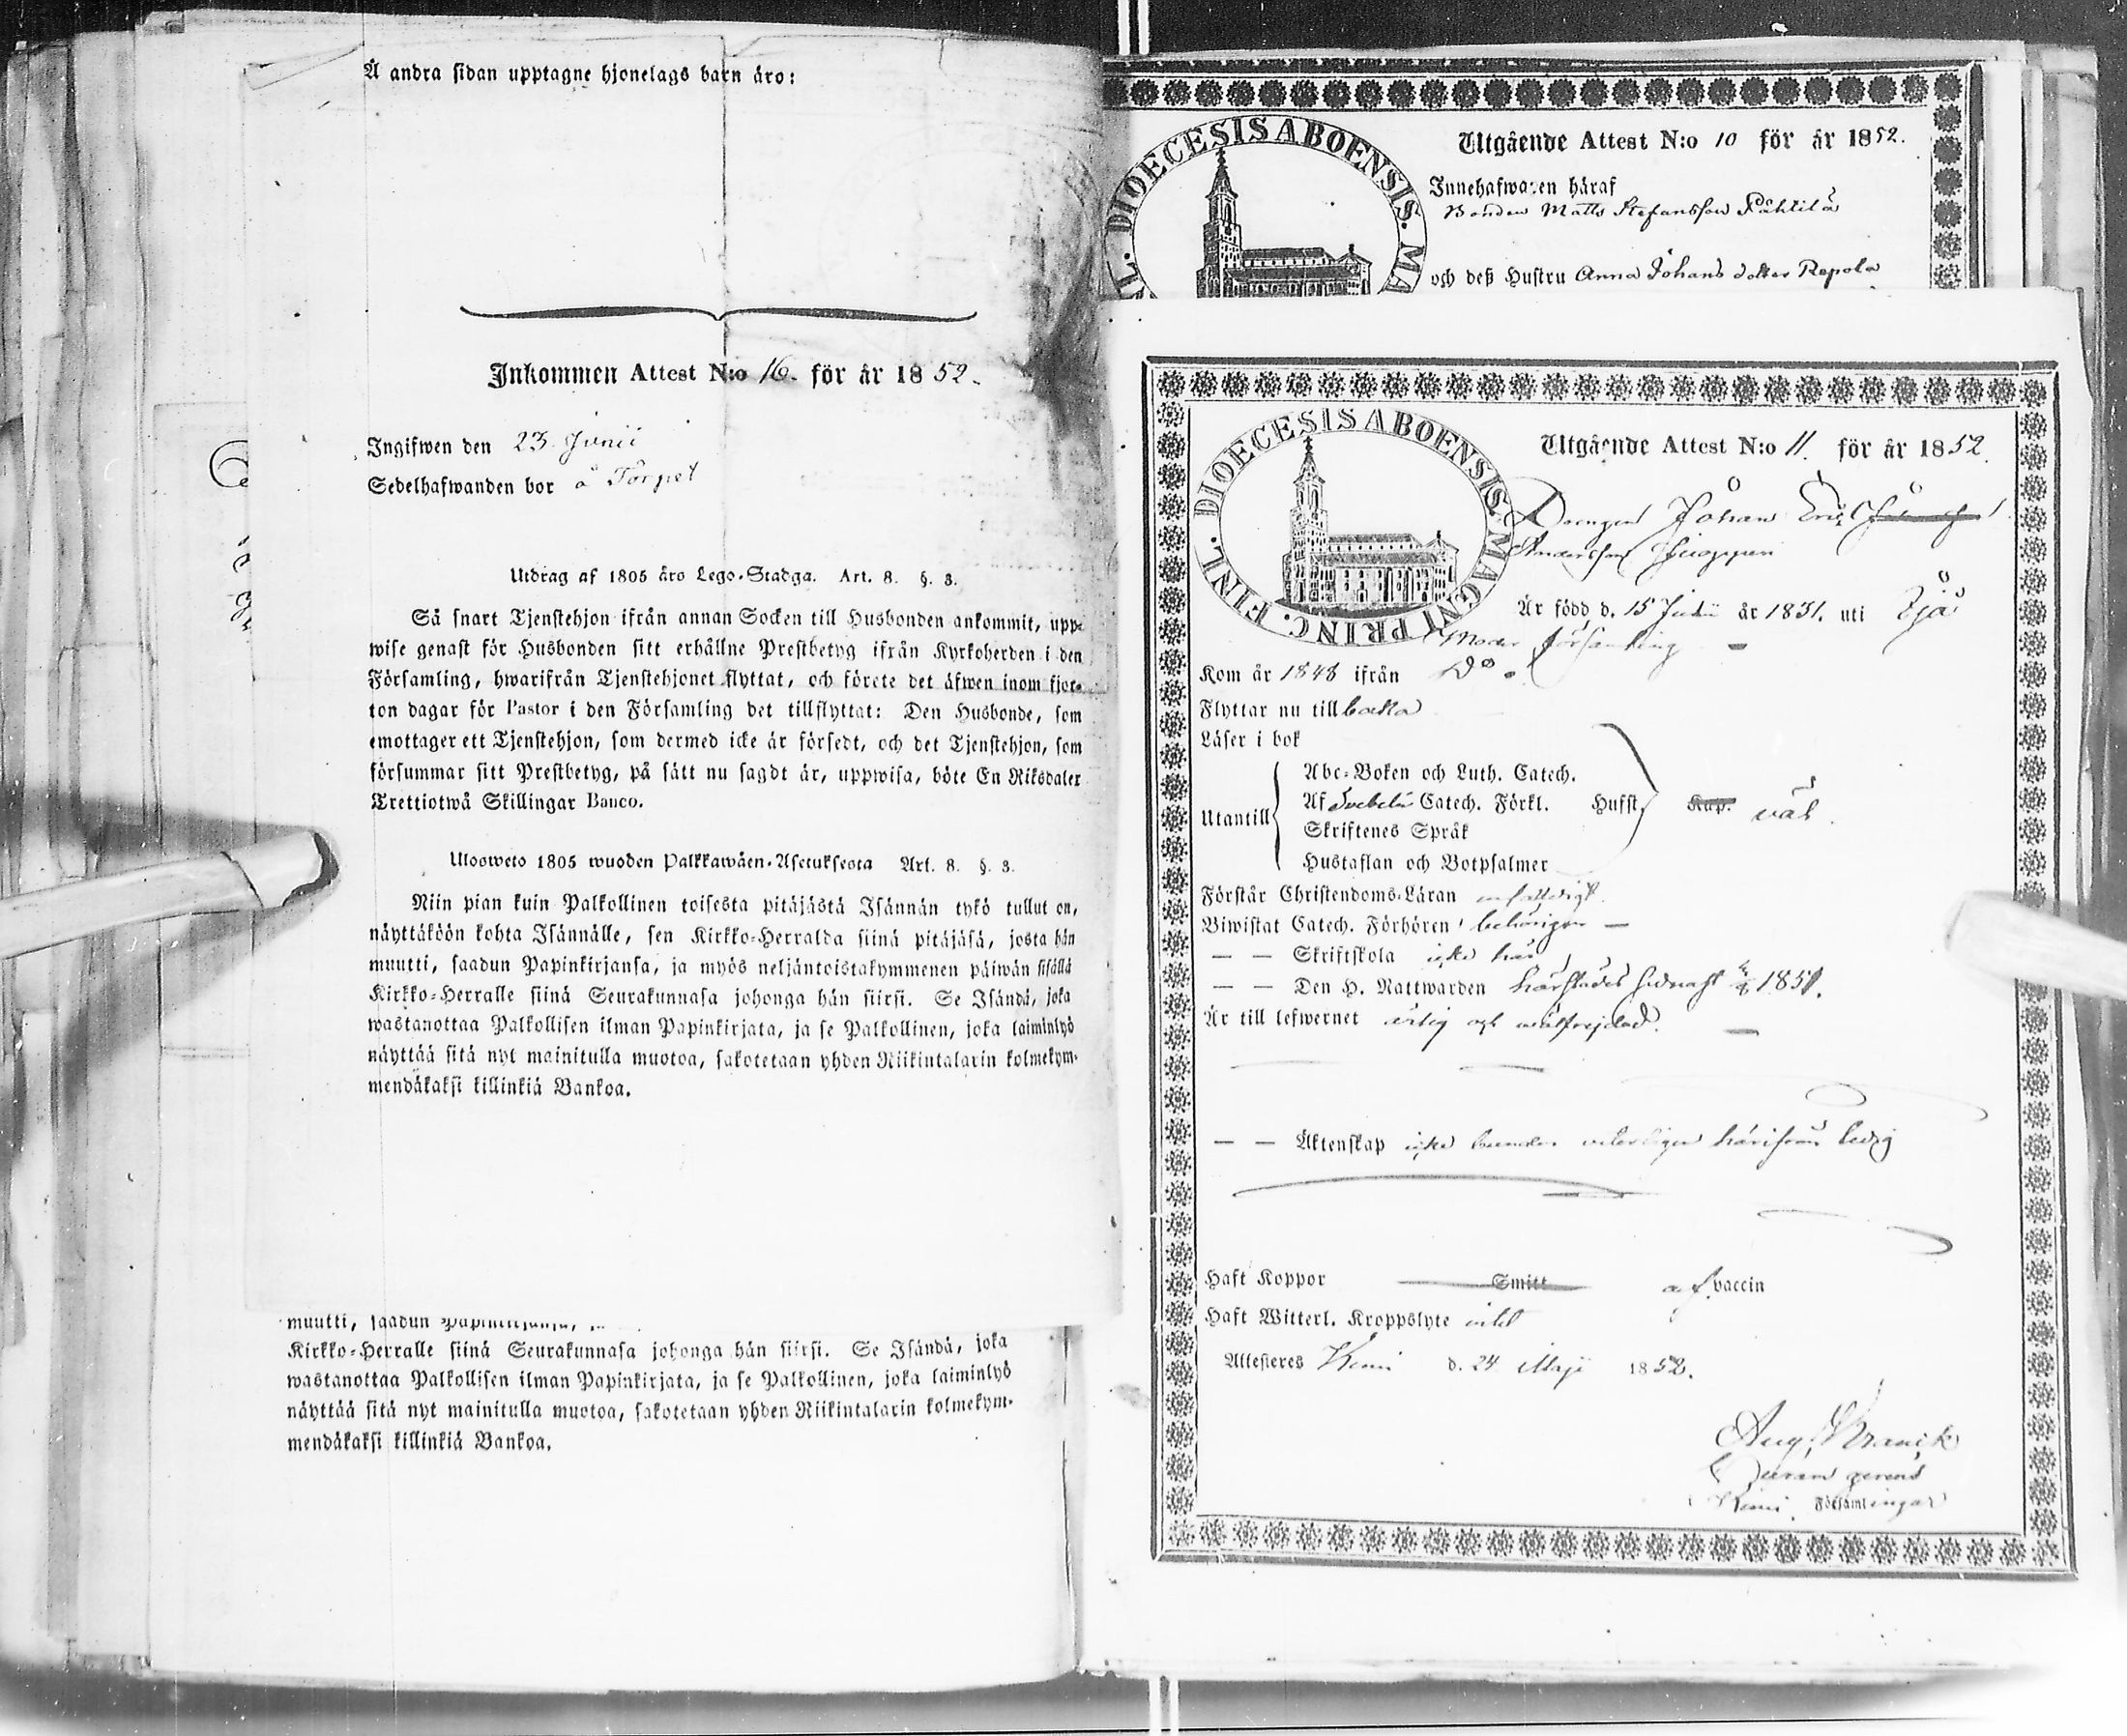 Å andra sidan upptagne hjonelags barn äro:
Inkommen Attest N:o 16. för år 1852.
Ingifwen den 23 Junii
Sedelhafwanden bor å Torpet
Utdrag af 1805 års Lego-Stadga. Art. 8. §. 3.
Så snart Tjenstehjon ifrån annan Socken till Husbonden ankommit, upp-
wise genast för Husbonden sitt erhållne Prestbetyg ifrån Kyrkoherden i den
Församling, hwarifrån Tjenstehjonet flyttat, och förete det äfwen inom fjor-
ton dagar för Pastor i den Församling det tillflyttat: Den Husbonde, som
emottager ett Tjenstehjon, som dermed icke är försedt, och det Tjenstehjon, som
försummar sitt Prestbetyg, på sätt nu sagdt är, uppwisa, böte En Riksdaler
Trettiotwå Skillingar Banco.
Ulosweto 1805 wuoden Palkkawäen-Asetuksesta Art. 8. §. 3.
Niin pian kuin Palkollinen toisesta pitäjästä Isännän tykö tullut on,
näyttäköön kohta Isännälle, sen Kirkko-Herralda siinä pitäjäsä, josta hän
muutti, saadun Papinkirjansa, ja myös neljäntoistakymmenen päiwän sisällä
Kirkko-Herralle siinä Seurakunnasa johonga hän siirsi. Se Isändä, joka
wastanottaa Palkollisen ilman Papinkirjata, ja se Palkollinen, joka laiminlyö
näyttää sitä nyt mainitulla muotoa, sakotetaan yhden Riikintalarin kolmekym-
mendäkaksi killinkiä Bankoa.
muutti, saadun Papinkirjansa, ja
Kirkko-Herralle siinä Seurakunnasa johonga hän siirsi. Se Isändä, joka
wastanottaa Palkollisen ilman Papinkirjata, ja se Palkollinen, joka laiminlyö
näyttää sitä nyt mainitulla muotoa, sakotetaan yhden Riikintalarin kolmekym-
mendäkaksi killinkiä Bankoa.
DIOECESIS ABOENSIS. MA
Utgående Attest N:o 10 för år 1852.
Innehafwaren häraf
Bonden Matts Stefansson Pähtilä
och deß Hustru Anna Johans dotter Repola
DIOECESIS ABOENSIS. MAGNI PRINC. FINL.
Utgående Attest N:o 11. för år 1852.
Drengen Johan Erik
Andersson
Är född d. 15 Julii år 1831. uti Ijå
Moder församling
Kom år 1848 ifrån Do
Flyttar nu till baka
Läser i bok
Utantill
Abc-Boken och Luth. Catech.
Af Svebelii Catech. Förkl. Hufst. Kap. väl.
Skriftenes Språk
Hustaflan och Botpsalmer
Förstår Christendoms-Läran enfalldigt.
Biwistat Catech. Förhören behörigen
— — Skriftskola icke här
— — Den H. Nattwarden härstädes sednast 1851.
Är till lefwernet ärlig och wälfrejdad.
— — Äktenskap icke bunden veterligen härifrån ledig
Haft Koppor Smitt af vaccin
Haft Witterl. Kroppslyte intet
Attesteres Kemi d. 24 Maji 1852.
Aug.
Curam gerens
Kemi Församlingar